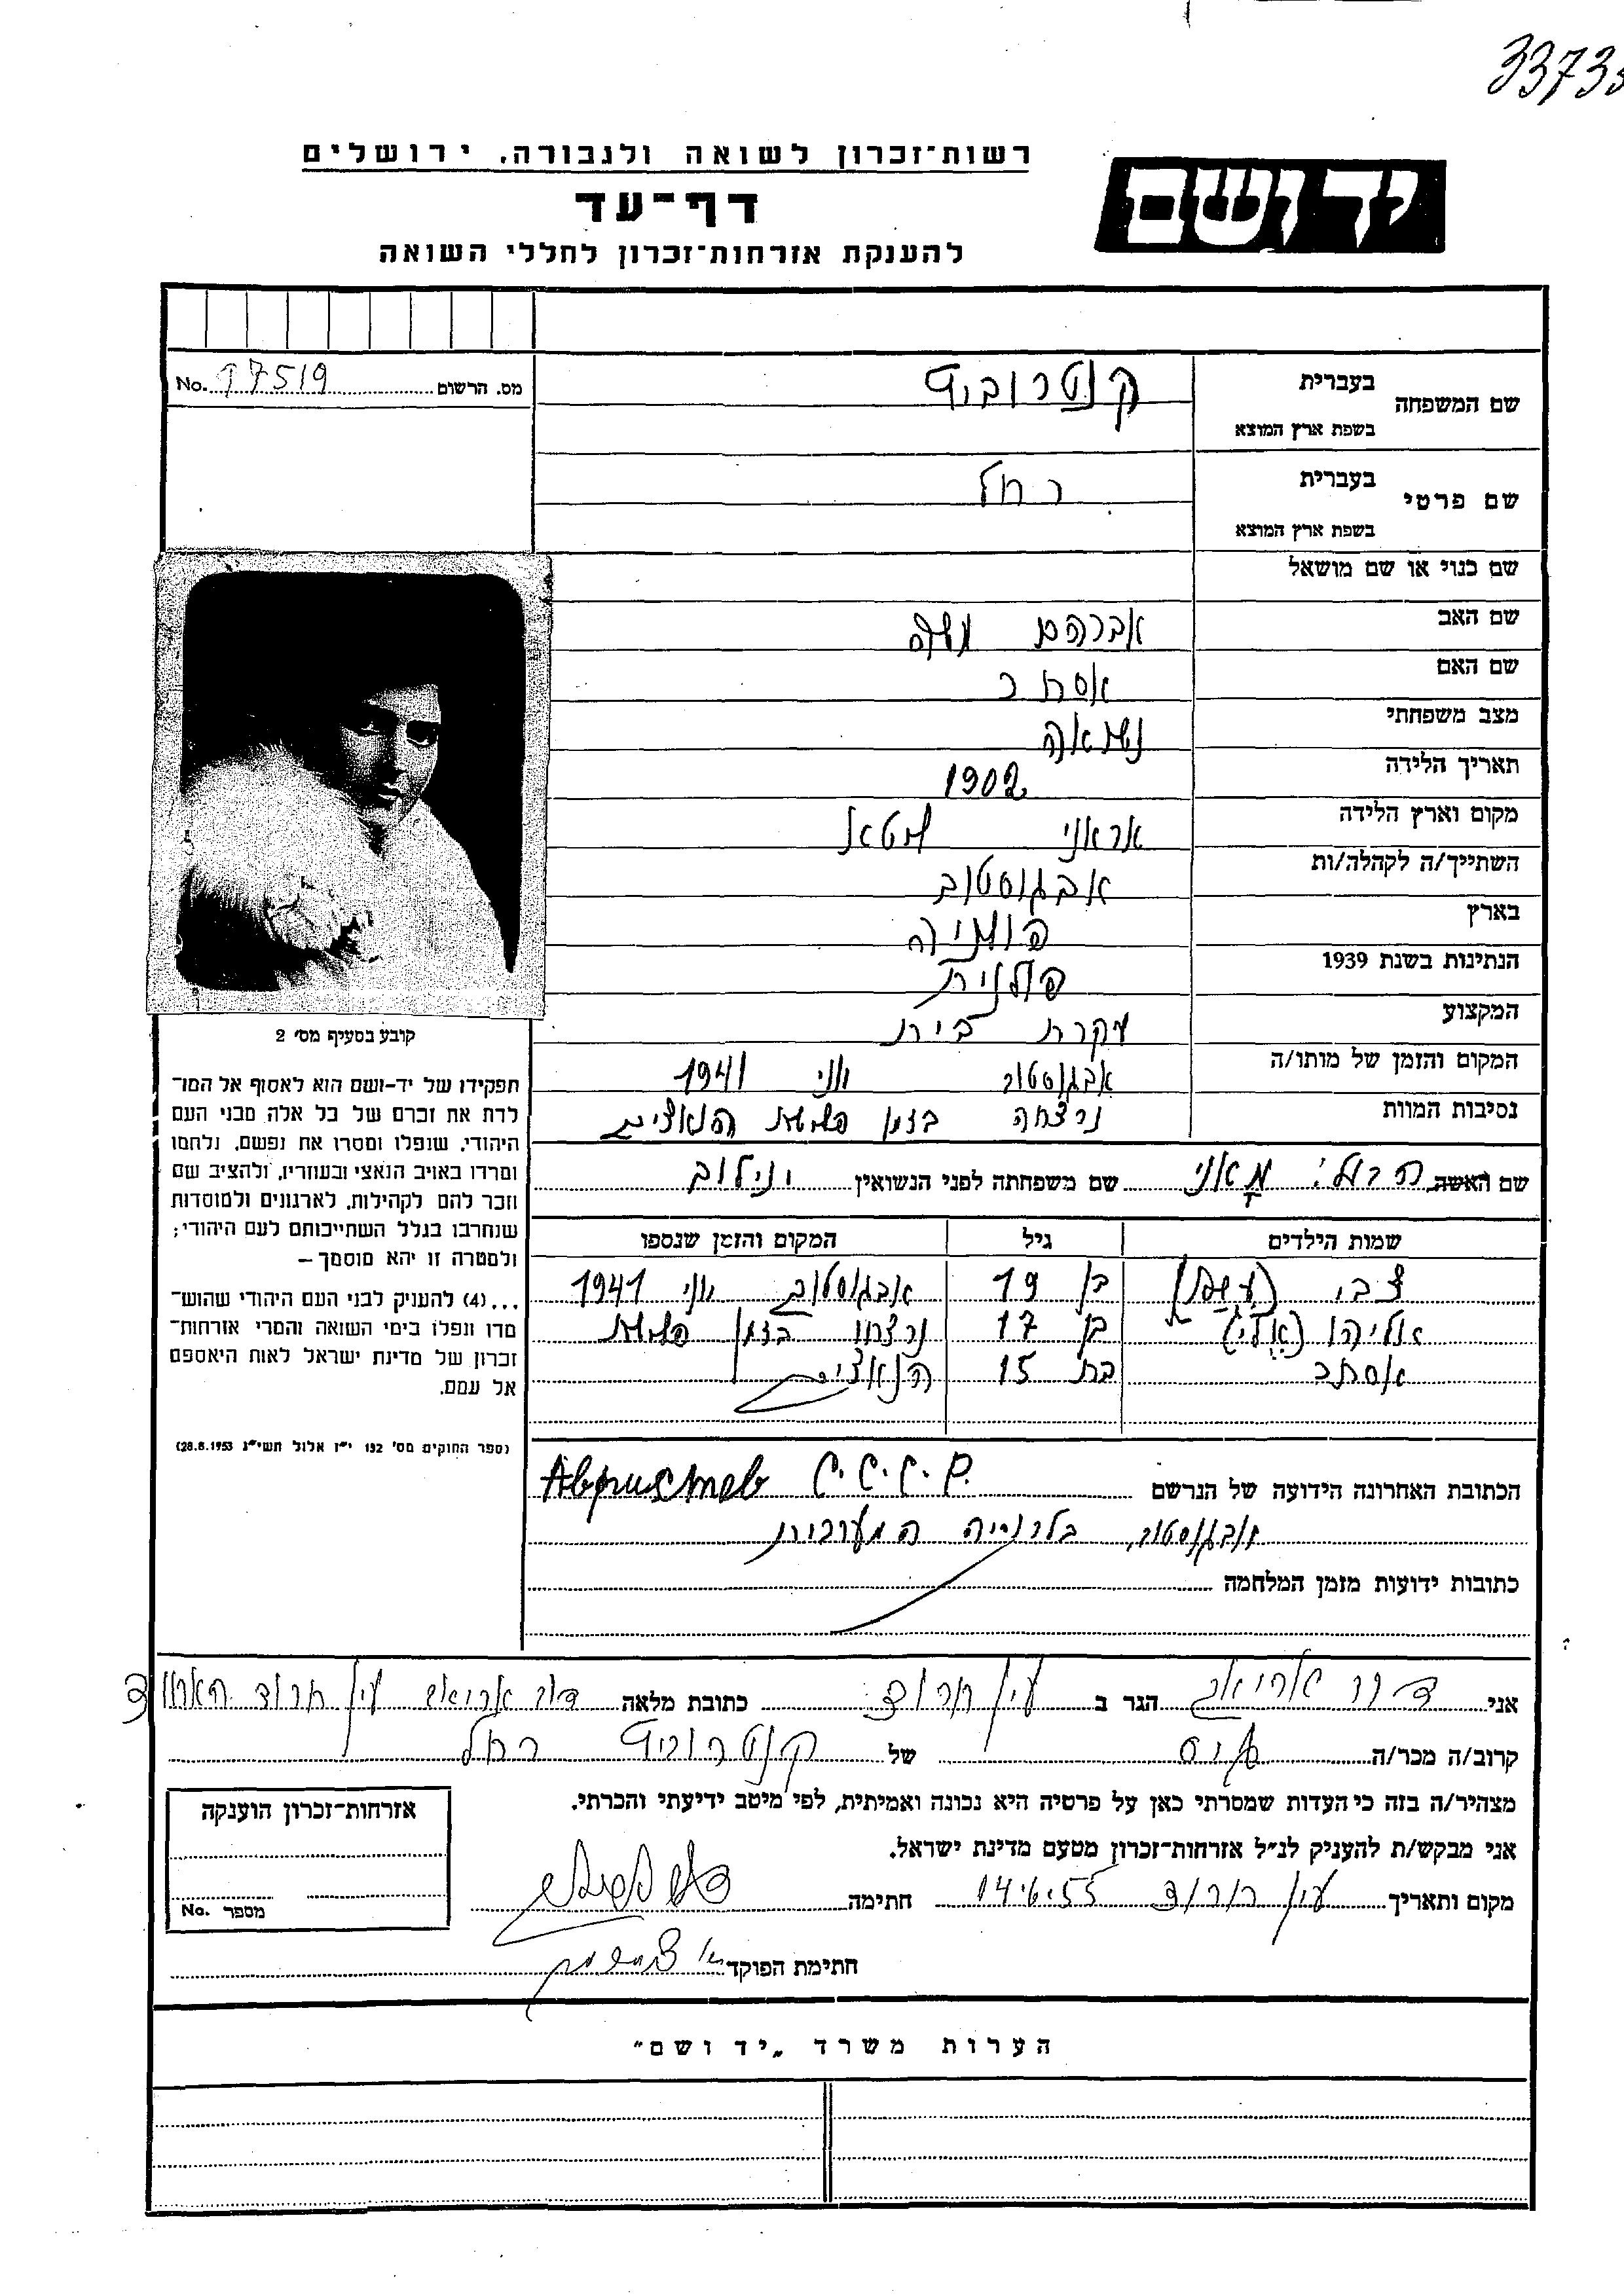 3373
רשות־זכרון לשואה ולגבורה, ירושלים
יד ושם
דף־עד
להענקת אזרחות־זכרון לחללי השואה
מס. הרשום 97519 No.
שם המשפחה
בעברית
קנטרוביץ
בשפת ארץ המוצא
שם פרטי
בעברית
רחל
בשפת ארץ המוצא
שם כנוי או שם מושאל
שם האב אברהם משה
שם האם אסתר
מצב משפחתי נשואה
תאריך הלידה 1902
מקום וארץ הלידה
השתייך/ה לקהלה/ות אבגוסטוב
בארץ
הנתינות בשנת 1939 פולנית
המקצוע עקרת בית
המקום והזמן של מותו/ה אבגוסטוב יוני 1941
נסיבות המוות נרצחה בזמן הנאצים
שם האשה הבעל: שם משפחתה לפני הנשואין
שמות הילדים גיל המקום והזמן שנספו
צבי בן 19 אבגוסטוב יוני 1941
אליהו בן 17 נרצחו בזמן
אסתר בת 15 הנאצים
הכתובת האחרונה הידועה של הנרשם
אבגוסטוב, המערבית
כתובות ידועות מזמן המלחמה
קובע בסעיף מס׳ 2
תפקידו של יד־ושם הוא לאסוף אל המו־
לדת את זכרם של כל אלה מבני העם
היהודי, שנפלו ומסרו את נפשם, נלחמו
ומרדו באויב הנאצי ובעוזריו, ולהציב שם
וזכר להם לקהילות, לארגונים ולמוסדות
שנחרבו בגלל השתייכותם לעם היהודי;
ולמטרה זו יהא מוסמך –
...(4) להעניק לבני העם היהודי שהוש־
מדו ונפלו בימי השואה והמרי אזרחות־
זכרון של מדינת ישראל לאות היאספם
אל עמם.
(ספר החוקים מס׳ 132 י״ז אלול תשי״ג 28.8.1953)
אני דב הגר ב עין חרוד כתובת מלאה דב עין חרוד
קרוב/ה מכר/ה של קנטרוביץ רחל
מצהיר/ה בזה כי העדות שמסרתי כאן על פרטיה היא נכונה ואמיתית, לפי מיטב ידיעתי והכרתי.
אני מבקש/ת להעניק לנ״ל אזרחות־זכרון מטעם מדינת ישראל.
מקום ותאריך עין חרוד 14.6.55 חתימה
חתימת הפוקד
אזרחות־זכרון הוענקה
מספר No.
הערות משרד „יד ושם״